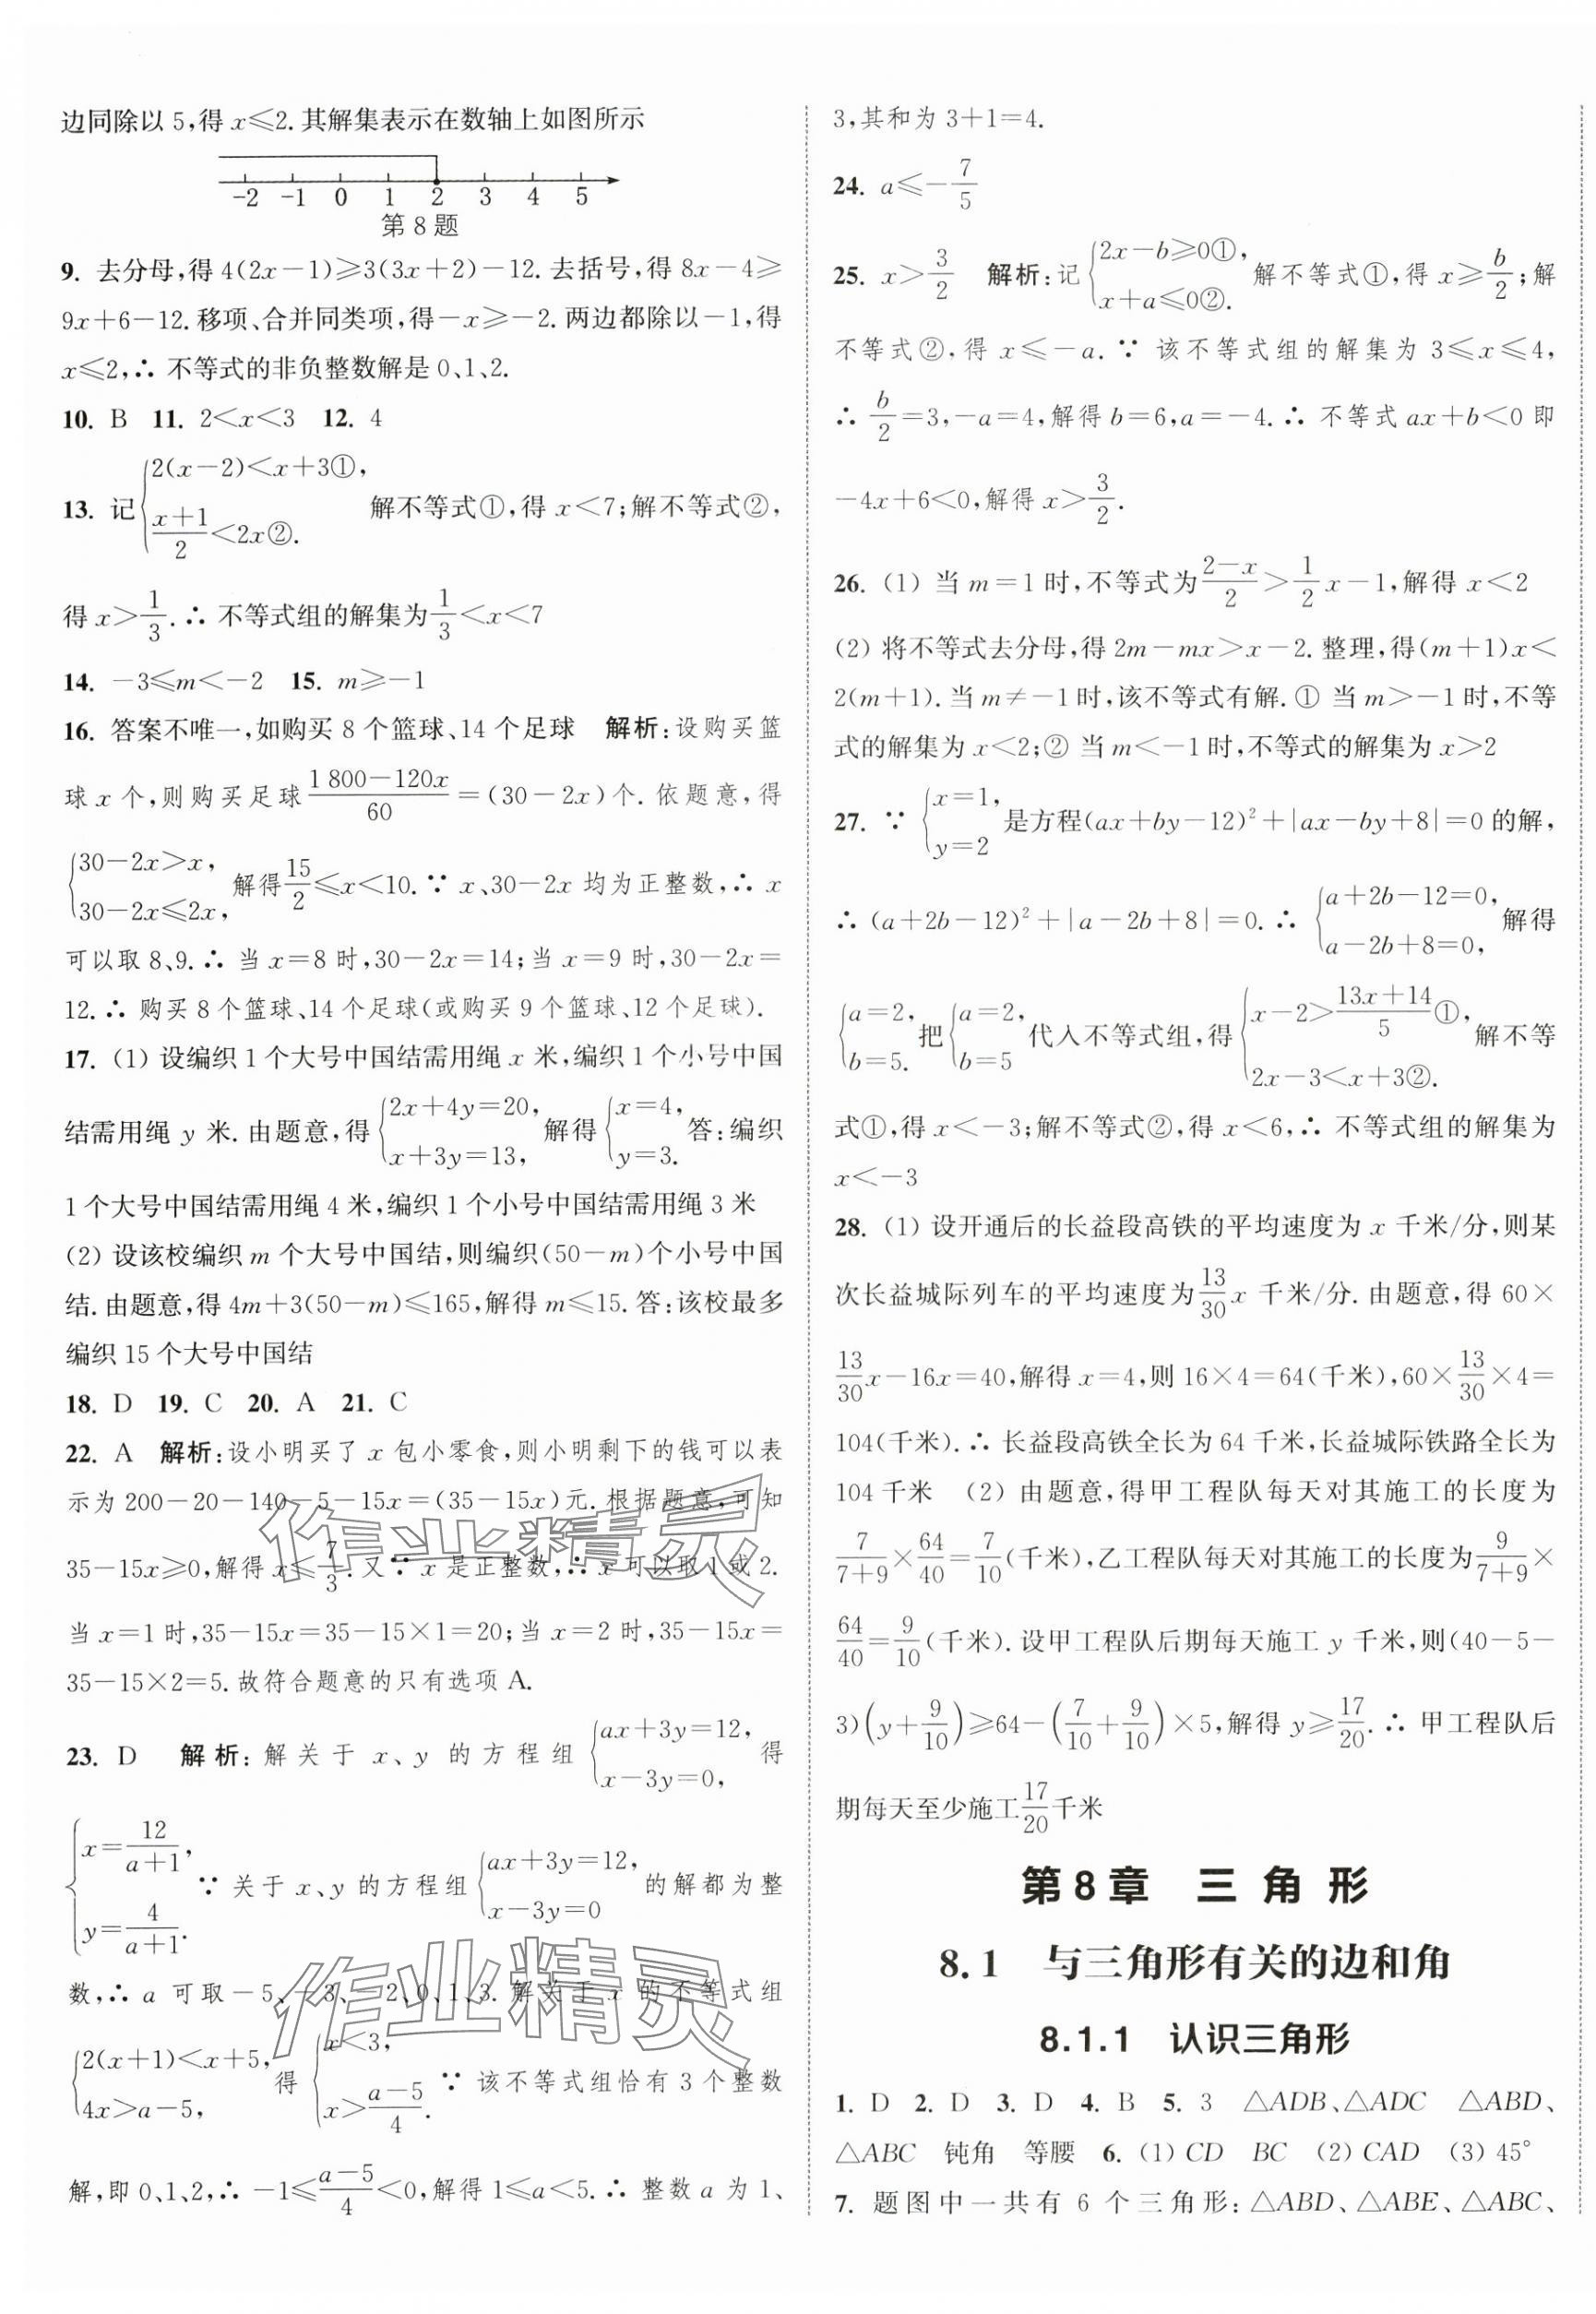 边同除以 5,得 x≤2. 其解集表示在数轴上如图所示
-2 -1 0 1 2 3 4 5
第 8 题
9. 去分母,得 4(2x-1)≥3(3x+2)-12. 去括号,得 8x-4≥
9x+6-12. 移项、合并同类项,得-x≥-2. 两边都除以-1,得
x≤2,∴ 不等式的非负整数解是 0、1、2.
10. B 11. 2<x<3 12. 4
13. 记{2(x-2)<x+3①, (x+1)/2<2x②. 解不等式①,得 x<7;解不等式②,
得 x>1/3. ∴ 不等式组的解集为1/3<x<7
14. -3≤m<-2 15. m≥-1
16. 答案不唯一,如购买 8 个篮球、14 个足球 解析:设购买篮
球 x 个,则购买足球(1 800-120x)/60=(30-2x)个. 依题意,得
{30-2x>x, 30-2x≤2x, 解得15/2≤x<10. ∵ x、30-2x 均为正整数,∴ x
可以取 8、9. ∴ 当 x=8 时,30-2x=14;当 x=9 时,30-2x=
12. ∴ 购买 8 个篮球、14 个足球(或购买 9 个篮球、12 个足球).
17. (1) 设编织 1 个大号中国结需用绳 x 米,编织 1 个小号中国
结需用绳 y 米. 由题意,得{2x+4y=20, x+3y=13, 解得{x=4, y=3. 答:编织
1 个大号中国结需用绳 4 米,编织 1 个小号中国结需用绳 3 米
(2) 设该校编织 m 个大号中国结,则编织(50-m)个小号中国
结. 由题意,得 4m+3(50-m)≤165,解得 m≤15. 答:该校最多
编织 15 个大号中国结
18. D 19. C 20. A 21. C
22. A 解析:设小明买了 x 包小零食,则小明剩下的钱可以表
示为 200-20-140-5-15x=(35-15x)元. 根据题意,可知
35-15x≥0,解得 x≤7/3. 又∵ x 是正整数,∴ x 可以取 1 或 2.
当 x=1 时,35-15x=35-15×1=20;当 x=2 时,35-15x=
35-15×2=5. 故符合题意的只有选项 A.
23. D 解析:解关于 x、y 的方程组{ax+3y=12, x-3y=0, 得
{x=12/(a+1), y=4/(a+1). ∵ 关于 x、y 的方程组{ax+3y=12, x-3y=0 的解都为整
数,∴ a 可取-5、-3、-2、0、1、3. 解关于 x 的不等式组
{2(x+1)<x+5, 4x>a-5, 得{x<3, x>(a-5)/4. ∵ 该不等式组恰有 3 个整数
解,即 0、1、2,∴ -1≤(a-5)/4<0,解得 1≤a<5. ∴ 整数 a 为 1、
作业精灵
作业精灵
3,其和为 3+1=4.
24. a≤-7/5
25. x>3/2 解析:记{2x-b≥0①, x+a≤0②. 解不等式①,得 x≥b/2;解
不等式②,得 x≤-a. ∵ 该不等式组的解集为 3≤x≤4,
∴ b/2=3,-a=4,解得 b=6,a=-4. ∴ 不等式 ax+b<0 即
-4x+6<0,解得 x>3/2.
26. (1) 当 m=1 时,不等式为(2-x)/2>1/2x-1,解得 x<2
(2) 将不等式去分母,得 2m-mx>x-2. 整理,得(m+1)x<
2(m+1). 当 m≠-1 时,该不等式有解. ① 当 m>-1 时,不等
式的解集为 x<2;② 当 m<-1 时,不等式的解集为 x>2
27. ∵ {x=1, y=2 是方程(ax+by-12)²+|ax-by+8|=0 的解,
∴ (a+2b-12)²+|a-2b+8|=0. ∴ {a+2b-12=0, a-2b+8=0, 解得
{a=2, b=5. 把{a=2, b=5 代入不等式组,得{x-2>(13x+14)/5①, 2x-3<x+3②. 解不等
式①,得 x<-3;解不等式②,得 x<6,∴ 不等式组的解集为
x<-3
28. (1) 设开通后的长益段高铁的平均速度为 x 千米/分,则某
次长益城际列车的平均速度为13/30x 千米/分. 由题意,得 60×
13/30x-16x=40,解得 x=4,则 16×4=64(千米),60×13/30×4=
104(千米). ∴ 长益段高铁全长为 64 千米,长益城际铁路全长为
104 千米 (2) 由题意,得甲工程队每天对其施工的长度为
7/(7+9)×64/40=7/10(千米),乙工程队每天对其施工的长度为9/(7+9)×
64/40=9/10(千米). 设甲工程队后期每天施工 y 千米,则(40-5-
3)(y+9/10)≥64-(7/10+9/10)×5,解得 y≥17/20. ∴ 甲工程队后
期每天至少施工17/20千米
第 8 章 三 角 形
8.1 与三角形有关的边和角
8.1.1 认识三角形
1. D 2. D 3. D 4. B 5. 3 △ADB、△ADC △ABD、
△ABC 钝角 等腰 6. (1) CD BC (2) CAD (3) 45°
7. 题图中一共有 6 个三角形:△ABD、△ABE、△ABC、